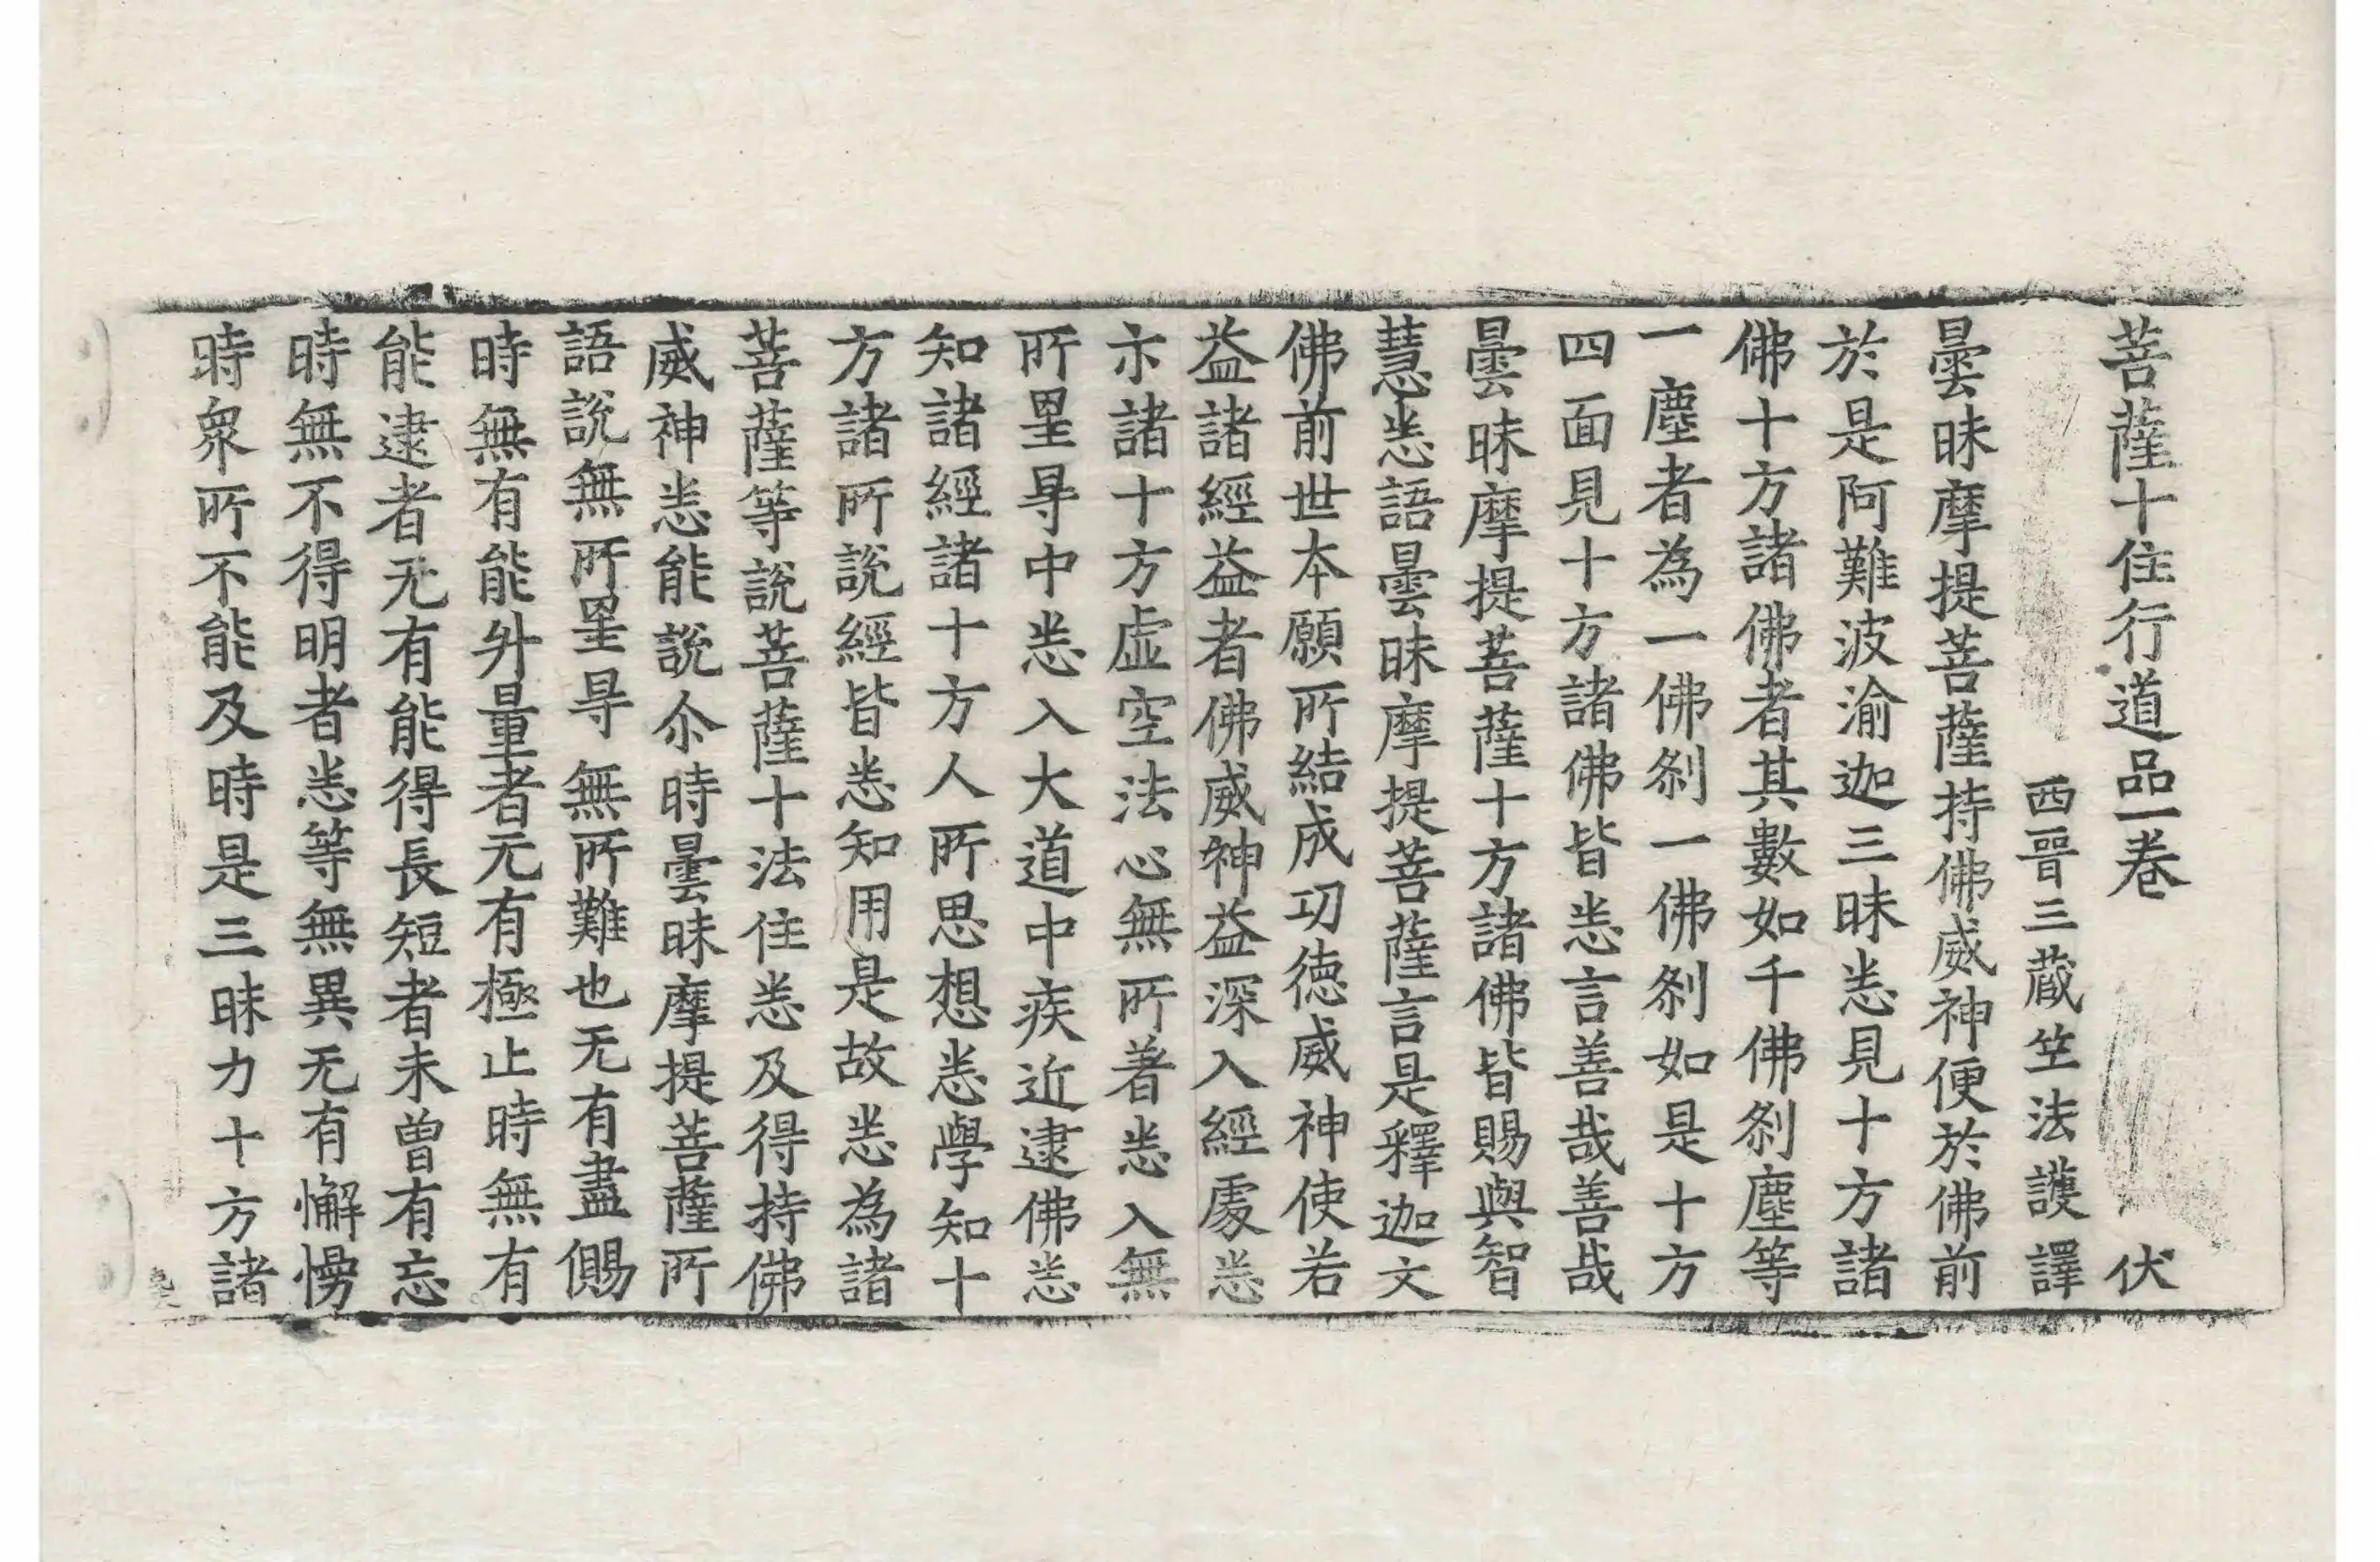 菩薩十住行道品一卷 伏
西晉三藏竺法護譯
曇昧摩提菩薩持佛威神便於佛前
於是阿難波渝迦三昧悉見十方諸
佛十方諸佛者其數如千佛刹塵等
一塵者為一佛刹一佛刹如是十方
四面見十方諸佛皆悉言善哉善哉
曇昧摩提菩薩十方諸佛皆賜與智
慧悉語曇昧摩提菩薩言是釋迦文
佛前世本願所結成功德威神使若
益諸經益者佛威神益深入經處悉
示諸十方虛空法心無所著悉入無
所罣㝵中悉入大道中疾近逮佛悉
知諸經諸十方人所思想悉學知十
方諸所說經皆悉知用是故悉為諸
菩薩等說菩薩十法住悉及得持佛
威神悉能說尒時曇昧摩提菩薩所
語說無所罣㝵無所難也无有盡儩
時無有能升量者元有極止時無有
能逮者无有能得長短者未曾有忘
時無不得明者悉等無異无有懈慢
時衆所不能及時是三昧力十方諸